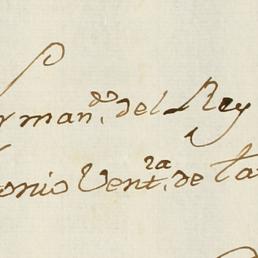 rman.do del Rey
onio Vent.ra de Ta